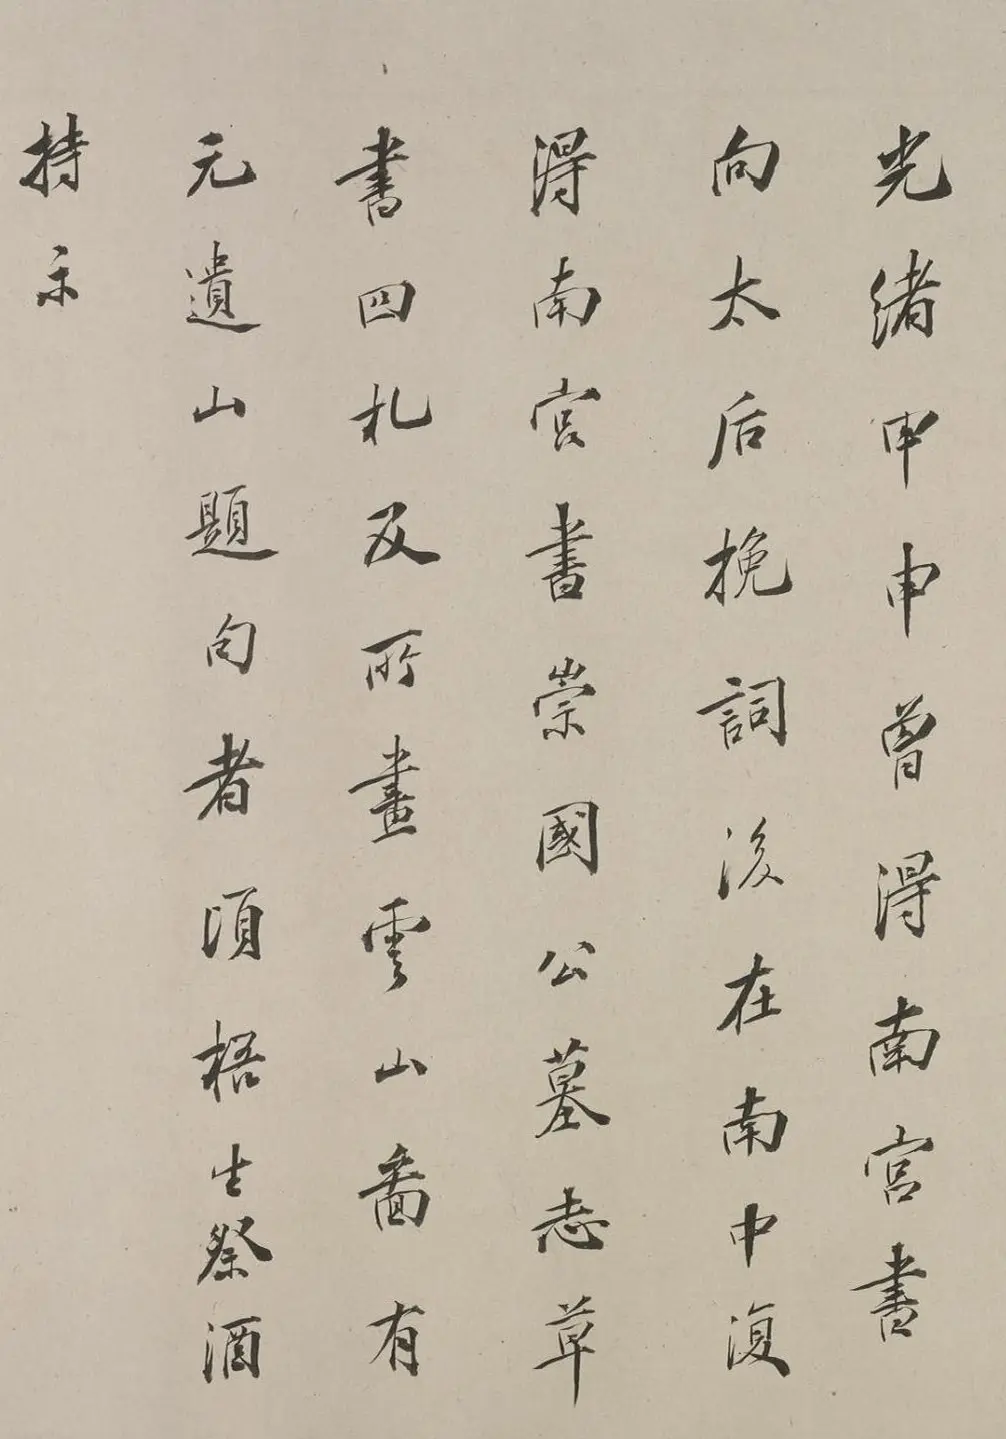 光緒甲申曾得南宮書
向太后挽詞後在南中復
得南宮書崇國公墓志草
書四札及所畫雲山圖有
元遺山題句者頃梧生祭酒
持示